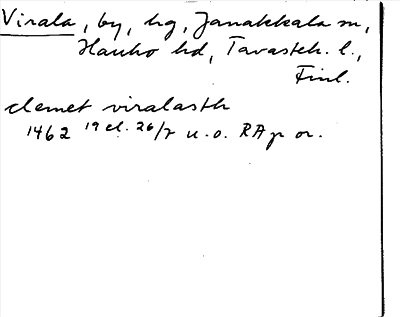 Virala, by, hg, Janakkala sn,
Hauho hd, Tavasteh. l.,
Finl.
clemet viralasth
1462 19 cl. 26/7 u.o. RAp or.